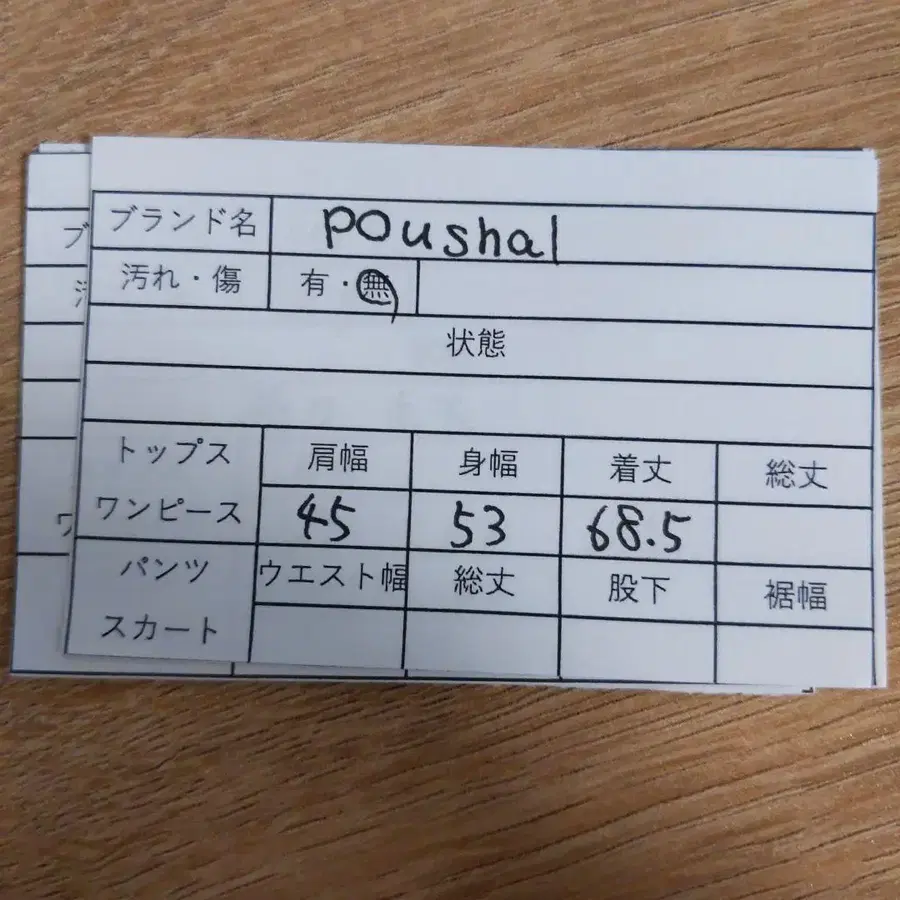 ブランド名 poushal
汚れ・傷 有・無
状態
トップス 肩幅 身幅 着丈 総丈
ワンピース 45 53 68.5
パンツ ウエスト幅 総丈 股下 裾幅
スカート